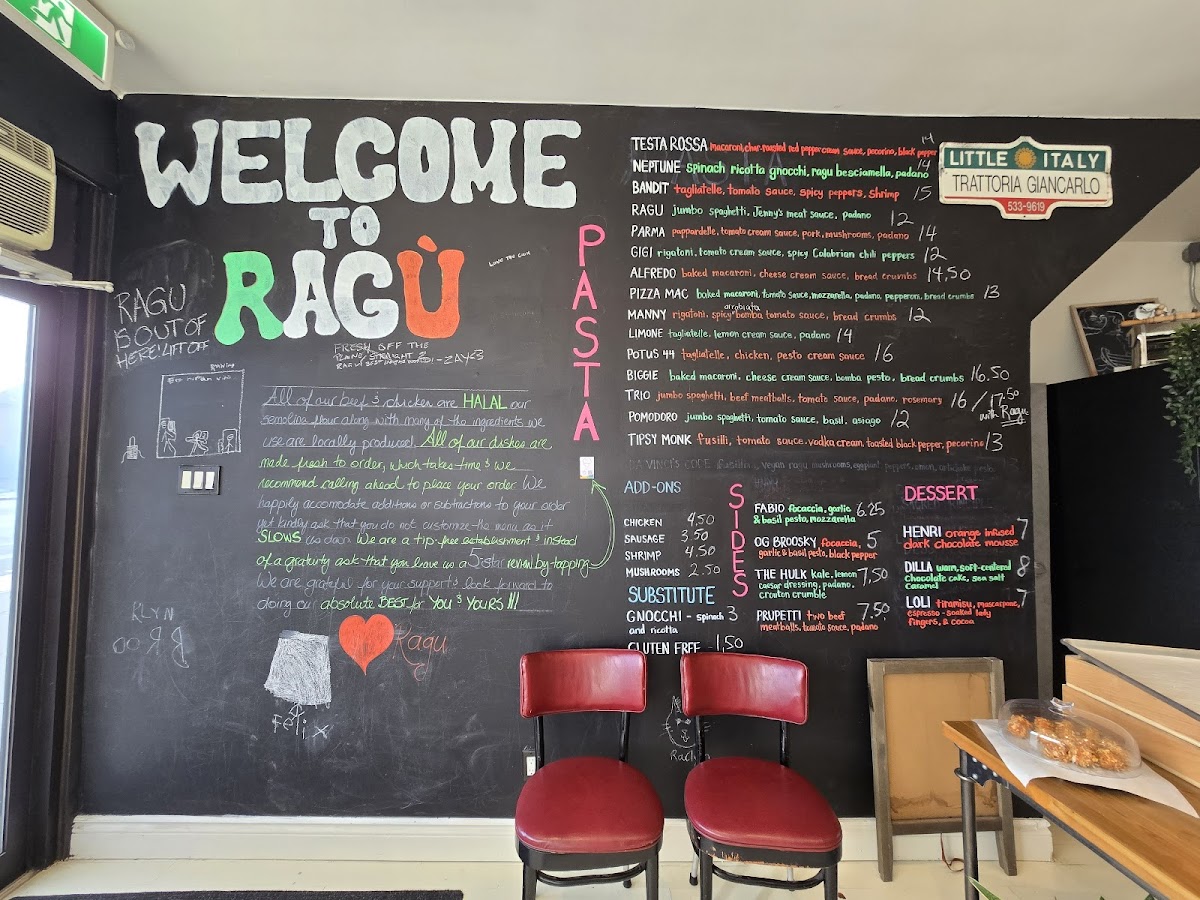 WELCOME
TO
RAGÙ
LOVE YOU GUM
RAGU
IS OUT OF
HERE! LIFT OFF
FRESH OFF THE
PLANE, STRAIGHT 2
RAGU -ZAY<3
All of our beef & chicken are HALAL our
semolina flour along with many of the ingredients we
use are locally produced. All of our dishes are
made fresh to order, which takes time & we
recommend calling ahead to place your order. We
happily accomodate additions or subtractions to your order
yet kindly ask that you do not customize the menu as it
SLOWS us down. We are a tip-free establishment & instead
of a gratuity ask that you leave us a 5 star review by tapping
We are grateful for your support & look forward to
doing our absolute BEST for YOU & YOURS !!!
KLYN
Ragu
Felix
PASTA
TESTA ROSSA macaroni, char-roasted red pepper cream sauce, pecorino, black pepper 14
NEPTUNE spinach ricotta gnocchi, ragu besciamella, padano 14
BANDIT tagliatelle, tomato sauce, spicy peppers, shrimp 15
RAGU jumbo spaghetti, Jenny's meat sauce, padano 12
PARMA pappardelle, tomato cream sauce, pork, mushrooms, padano 14
GIGI rigatoni, tomato cream sauce, spicy Calabrian chili peppers 12
ALFREDO baked macaroni, cheese cream sauce, bread crumbs 14,50
PIZZA MAC baked macaroni, tomato sauce, mozzarella, padano, pepperoni, bread crumbs 13
MANNY rigatoni, spicy bomba arrabiata tomato sauce, bread crumbs 12
LIMONE tagliatelle, lemon cream sauce, padano 14
POTUS 44 tagliatelle, chicken, pesto cream sauce 16
BIGGIE baked macaroni, cheese cream sauce, bomba pesto, bread crumbs 16.50
TRIO jumbo spaghetti, beef meatballs, tomato sauce, padano, rosemary 16 / 17.50 with Ragu
POMODORO jumbo spaghetti, tomato sauce, basil, asiago 12
TIPSY MONK fusilli, tomato sauce, vodka cream, toasted black pepper, pecorino 13
DA VINCI'S CODE fusilli, vegan ragu mushrooms, eggplant, peppers, onion, artichoke pesto 13
LITTLE ITALY
TRATTORIA GIANCARLO
533-9619
ADD-ONS
CHICKEN 4.50
SAUSAGE 3.50
SHRIMP 4.50
MUSHROOMS 2.50
SUBSTITUTE
GNOCCHI - spinach 3
and ricotta
GLUTEN FREE - 1,50
SIDES
FABIO focaccia, garlic 6.25
& basil pesto, mozzarella
OG BROOSKY focaccia, 5
garlic & basil pesto, black pepper
THE HULK kale, lemon 7,50
caesar dressing, padano,
crouton crumble
PRUPETTI two beef 7.50
meatballs, tomato sauce, padano
DESSERT
HENRI orange infused 7
dark chocolate mousse
DILLA warm, soft-centered 8
chocolate cake, sea salt
caramel
LOLI tiramisu, mascarpone, 7
espresso-soaked lady
fingers, & cocoa